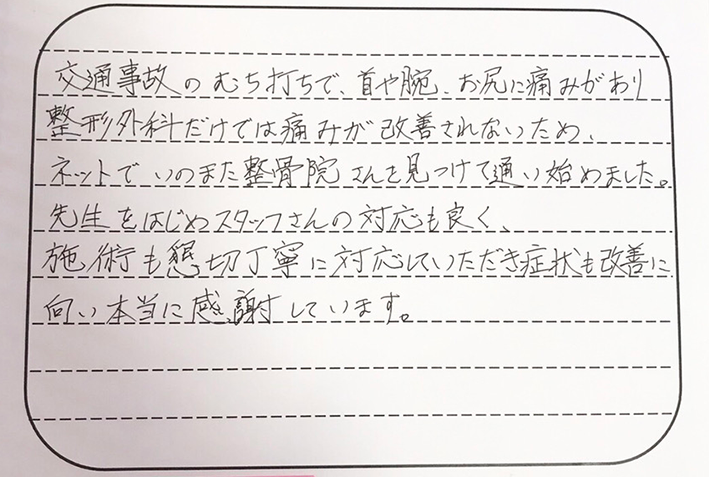 交通事故のむち打ちで、首や腕、お尻に痛みがあり
整形外科だけでは痛みが改善されないため、
ネットでいのまた整骨院さんを見つけて通い始めました。
先生をはじめスタッフさんの対応も良く、
施術も懇切丁寧に対応していただき症状も改善に
向い本当に感謝しています。